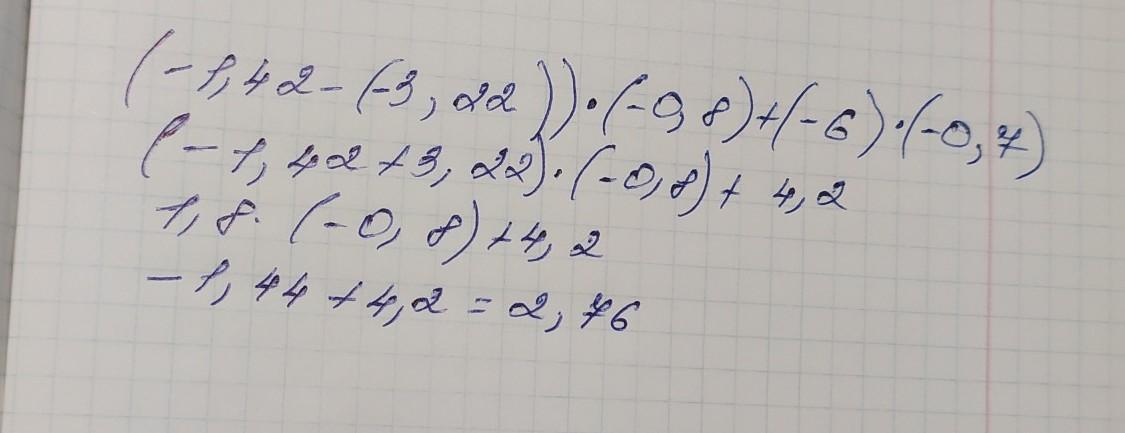 (-1,42-(-3,22))·(-0,8)+(-6)·(-0,7)
(-1,42+3,22)·(-0,8)+4,2
1,8·(-0,8)+4,2
-1,44+4,2=2,76